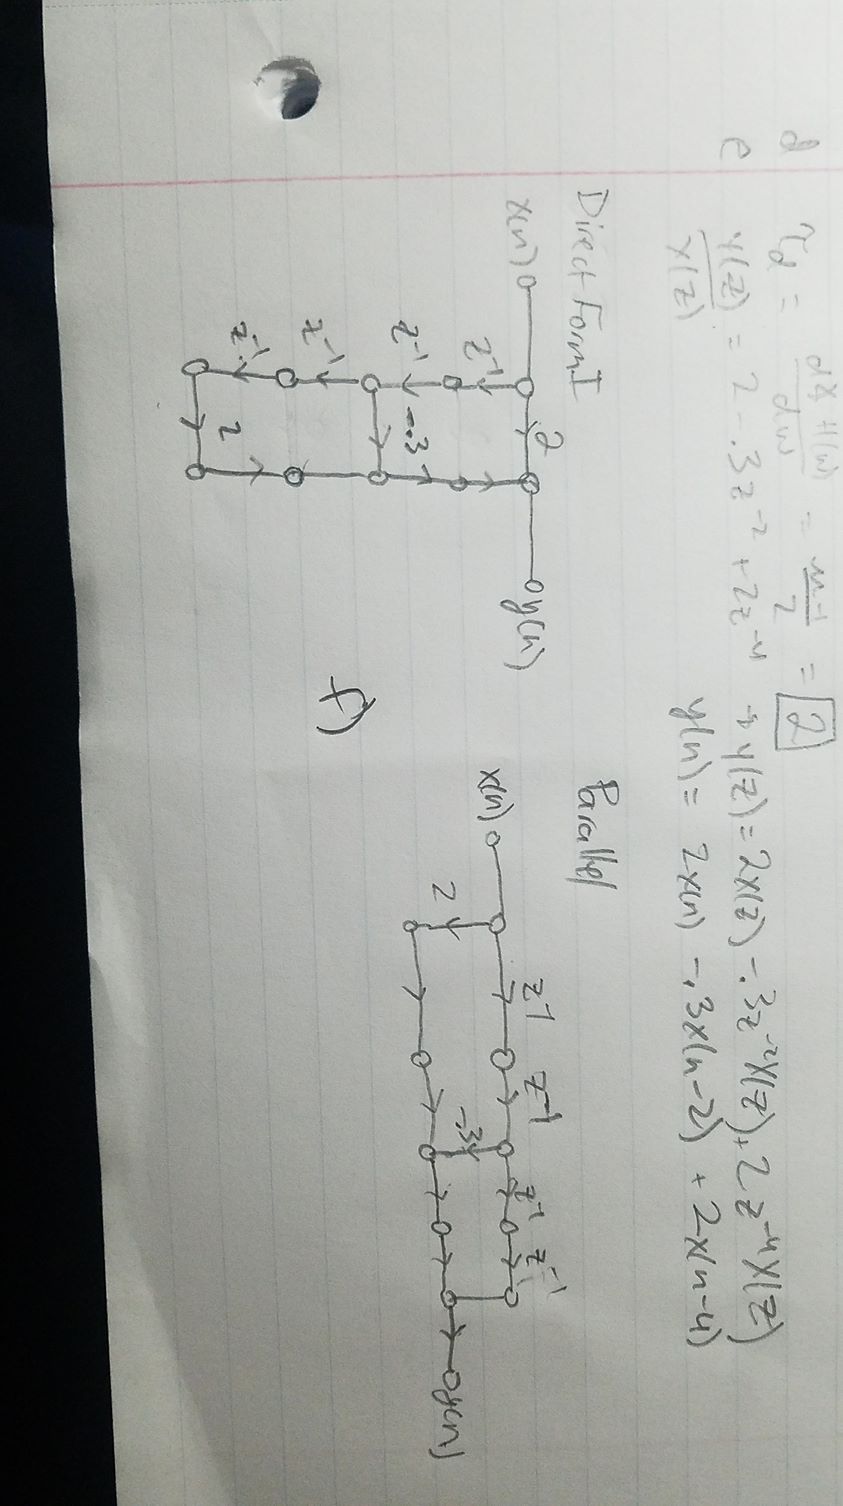 d τd = d∡H(ω)/dω = M-1/2 = 2
e Y(z)/X(z) = 2 - .3z⁻² + 2z⁻⁴ → Y(z) = 2X(z) - .3z⁻²X(z) + 2z⁻⁴X(z)
y(n) = 2x(n) - .3x(n-2) + 2x(n-4)
Direct Form I
x(n) 2 y(n)
z⁻¹
z⁻¹ -.3
z⁻¹
z⁻¹ 2
f)
Parallel
x(n) z⁻¹ z⁻¹ z⁻¹ z⁻¹
2 -.3 y(n)